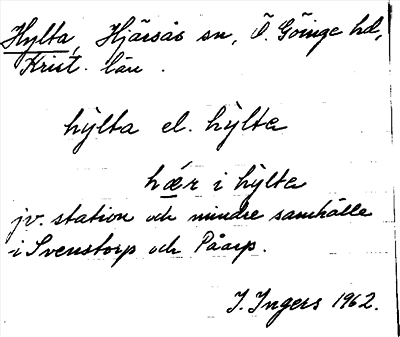 Hylta, Hjärsås sn, Ö. Göinge hd,
Krist. län.
hy̆lta el. hy̆lta
hær i hy̆lta
jv. station och mindre samhälle
i Svenstorp och Påarp.
I. Ingers 1962.